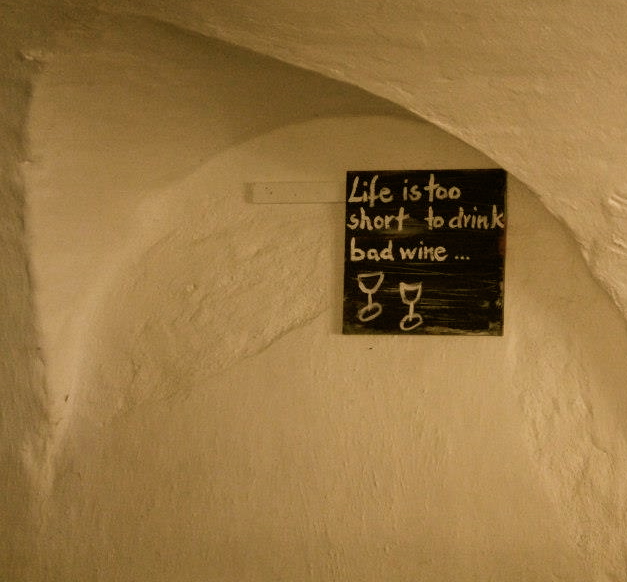 Life is too
short to drink
bad wine ...